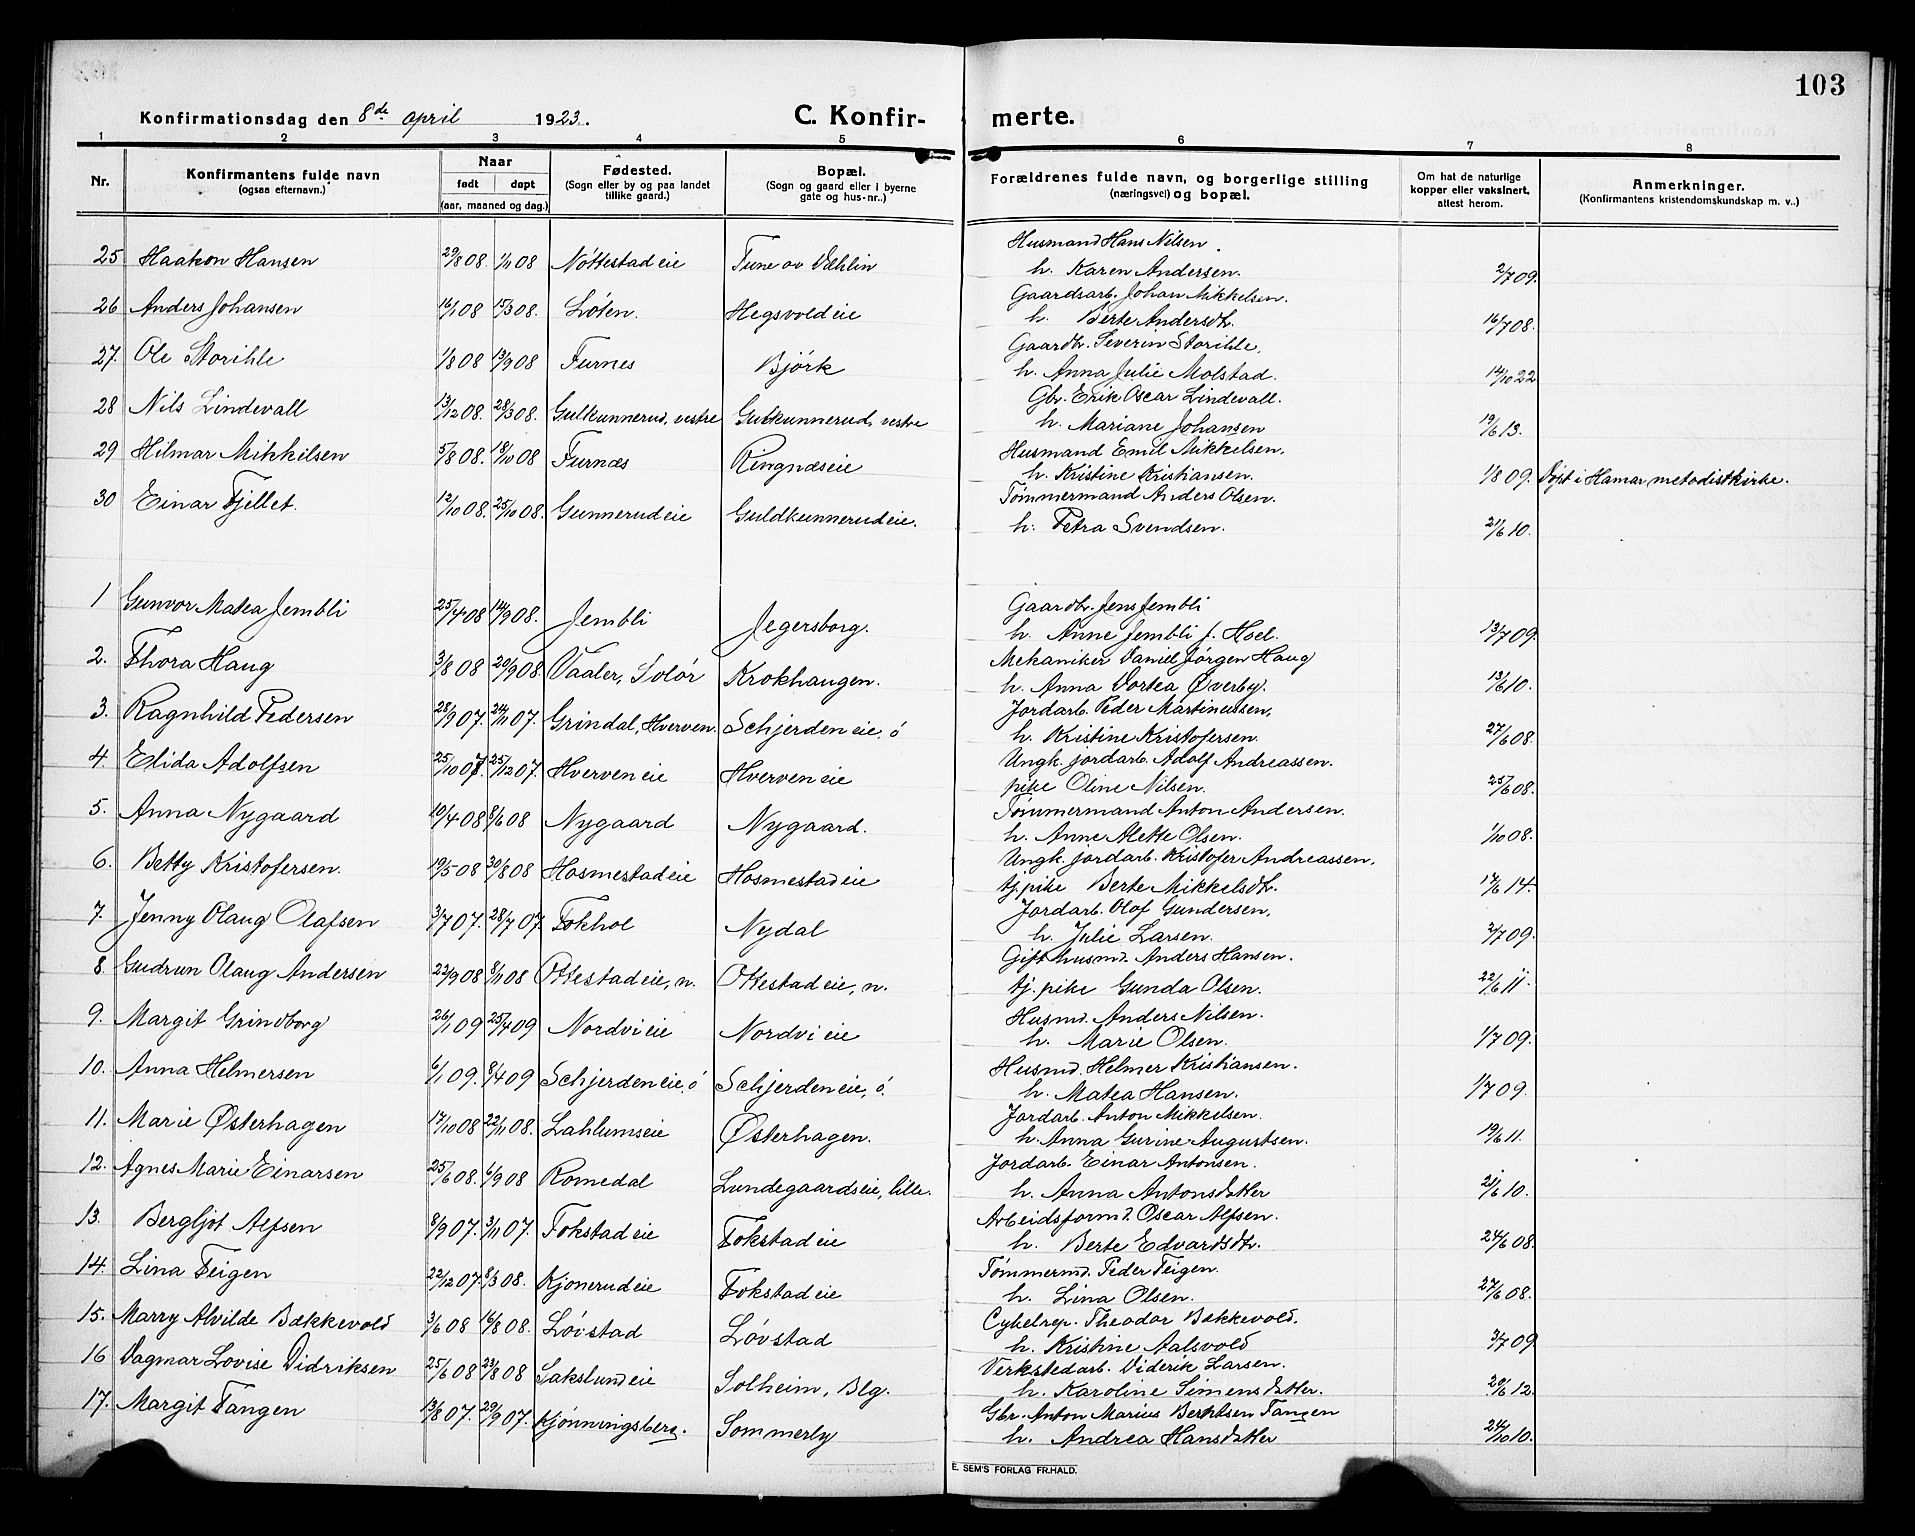 103
Konfirmationsdag den 8de april 1923. C. Konfir- merte.
1 2 3 4 5 6 7 8
Nr. Konfirmantens fulde navn (ogsaa efternavn.) Naar født døpt (aar, maaned og dag.) Fødested. (Sogn eller by og paa landet tillike gaard.) Bopæl. (Sogn og gaard eller i byerne gate og hus-nr..) Forældrenes fulde navn, og borgerlige stilling (næringsvei) og bopæl. Om hat de naturlige kopper eller vaksinert, attest herom. Anmerkninger. (Konfirmantens kristendomskundskap m. v..)
25 Haakon Hansen 29/8 08. 1/11 08 Nøttestadeie Tune ov Væhlin Husmand Hans Nilsen.
h. Karen Andersen. 2/7 09.
26 Anders Johansen 16/1 08 15/3 08. Løten. Hegsvoldeie Gaardsarb. Johan Mikkelsen.
h. Berte Andersdtr. 16/7 08.
27. Ole Storihle 1/8 08 13/9 08 Furnes Bjørk Gaardbr. Severin Storihle.
h. Anna Julie Molstad. 14/10 22
28 Nils Lindevall 13/12 08. 28/3 08. Gulkunnerud, vestre Gulkunnerud, vestre Gbr. Erik Oscar Lindevall.
h. Mariane Johansen 19/6 13.
29 Hilmar Mikkelsen 5/8 08. 18/10 08 Furnæs Ringnæseie Husmand Emil Mikkelsen.
h. Kristine Kristiansen. 1/8 09. Døpt i Hamar metodistkirke.
30 Einar Fjellet. 12/10 08. 25/10 08. Gunnerudeie Guldkunnerudeie. Tømmermand Anders Olsen.
h. Petra Svendsen. 21/6 10.
1 Gunvor Matea Jembli 25/7 08 14/9 08. Jembli Jegersborg. Gaardbr. Jens Jembli
h. Anne Jembli f. Hoel. 13/7 09.
2. Thora Haug 3/8 08 20/9 08. Vaaler, Solør Krokhaugen. Mekaniker Daniel Jørgen Haug
h. Anna Dortea Øverby. 13/6 10.
3. Ragnhild Pedersen 28/9 07. 24/11 07. Grindal, Hverven. Schjerdeneie, ö Jordarb. Peder Martinussen.
h. Kristine Kristofersen. 27/6 08.
4. Elida Adolfsen 25/10 07. 25/12 07. Hverveneie Hverveneie Ungk. jordarb. Adolf Andreassen.
pike Oline Nilsen. 25/6 08.
5. Anna Nygaard 10/4 08 8/6 08 Nygaard Nygaard. Tømmermand Anton Andersen.
h. Anne Alette Olsen. 1/10 08.
6. Betty Kristofersen. 19/5 08 30/8 08 Hosmestadeie Hosmestadeie Ungk. jordarb. Kristofer Andreassen.
tj. pike Berte Mikkelsdtr. 17/6 14.
7. Jenny Olaug Olafsen 3/7 07. 28/7 07. Fokhol Nydal Jordarb. Olof Gundersen.
h. Julie Larsen. 2/7 09.
8 Gudrun Olaug Andersen 22/9 08 8/11 08 Ottestadeie, n. Ottestadeie, n. Gift husmd. Anders Hansen.
tj. pike Gunda Olsen. 22/6 11.
9. Margit Grindborg 26/1 09 25/4 09 Nordvieie Nordvieie Husmd. Anders Nilsen.
h. Marie Olsen. 1/7 09.
10. Anna Helmersen 6/1 09. 8/4 09 Schjerdeneie, ö Schjerdeneie, ö. Husmd. Helmer Kristiansen.
h. Matea Hansen. 1/7 09
11. Marie Østerhagen 17/10 08 22/11 08. Lahlumseie Østerhagen. Jordarb. Anton Mikkelsen.
h. Anna Gurine Augustsen. 19/6 11.
12. Agnes Marie Einarsen 25/6 08. 6/9 08 Romedal Lundegaardseie, lille. Jordarb. Einar Antonsen.
h. Anna Antonsdatter 21/6 10.
13. Bergljot Alfsen 8/9 07. 3/11 07. Fokstadeie Fokstadeie Arbeidsformd. Oscar Alfsen.
h. Berte Edvardsdtr. 24/6 08.
14. Lina Teigen 22/12 07. 8/3 08. Kjonerudeie Fokstadeie Tømmermd. Peder Teigen.
h. Lina Olsen. 27/6 08.
15. Marry Alvilde Bækkevold 3/6 08 16/8 08. Løvstad Løvstad Cykelrep. Theodor Bækkevold.
h. Kristine Aalsvold 3/7 09
16 Dagmar Lovise Didriksen 25/6 08 23/8 08 Sakslundeie Solheim, Blg. Verkstedarb. Diderik Larsen.
h. Karoline Simensdatter. 20/6 12.
17. Margit Tangen 13/8 07. 29/9 07. Kjønningsberg. Sommerly Gbr. Anton Marius Berntsen Tangen
h. Andrea Hansdatter 24/10 10.
E. SEM'S FORLAG FR.HALD.